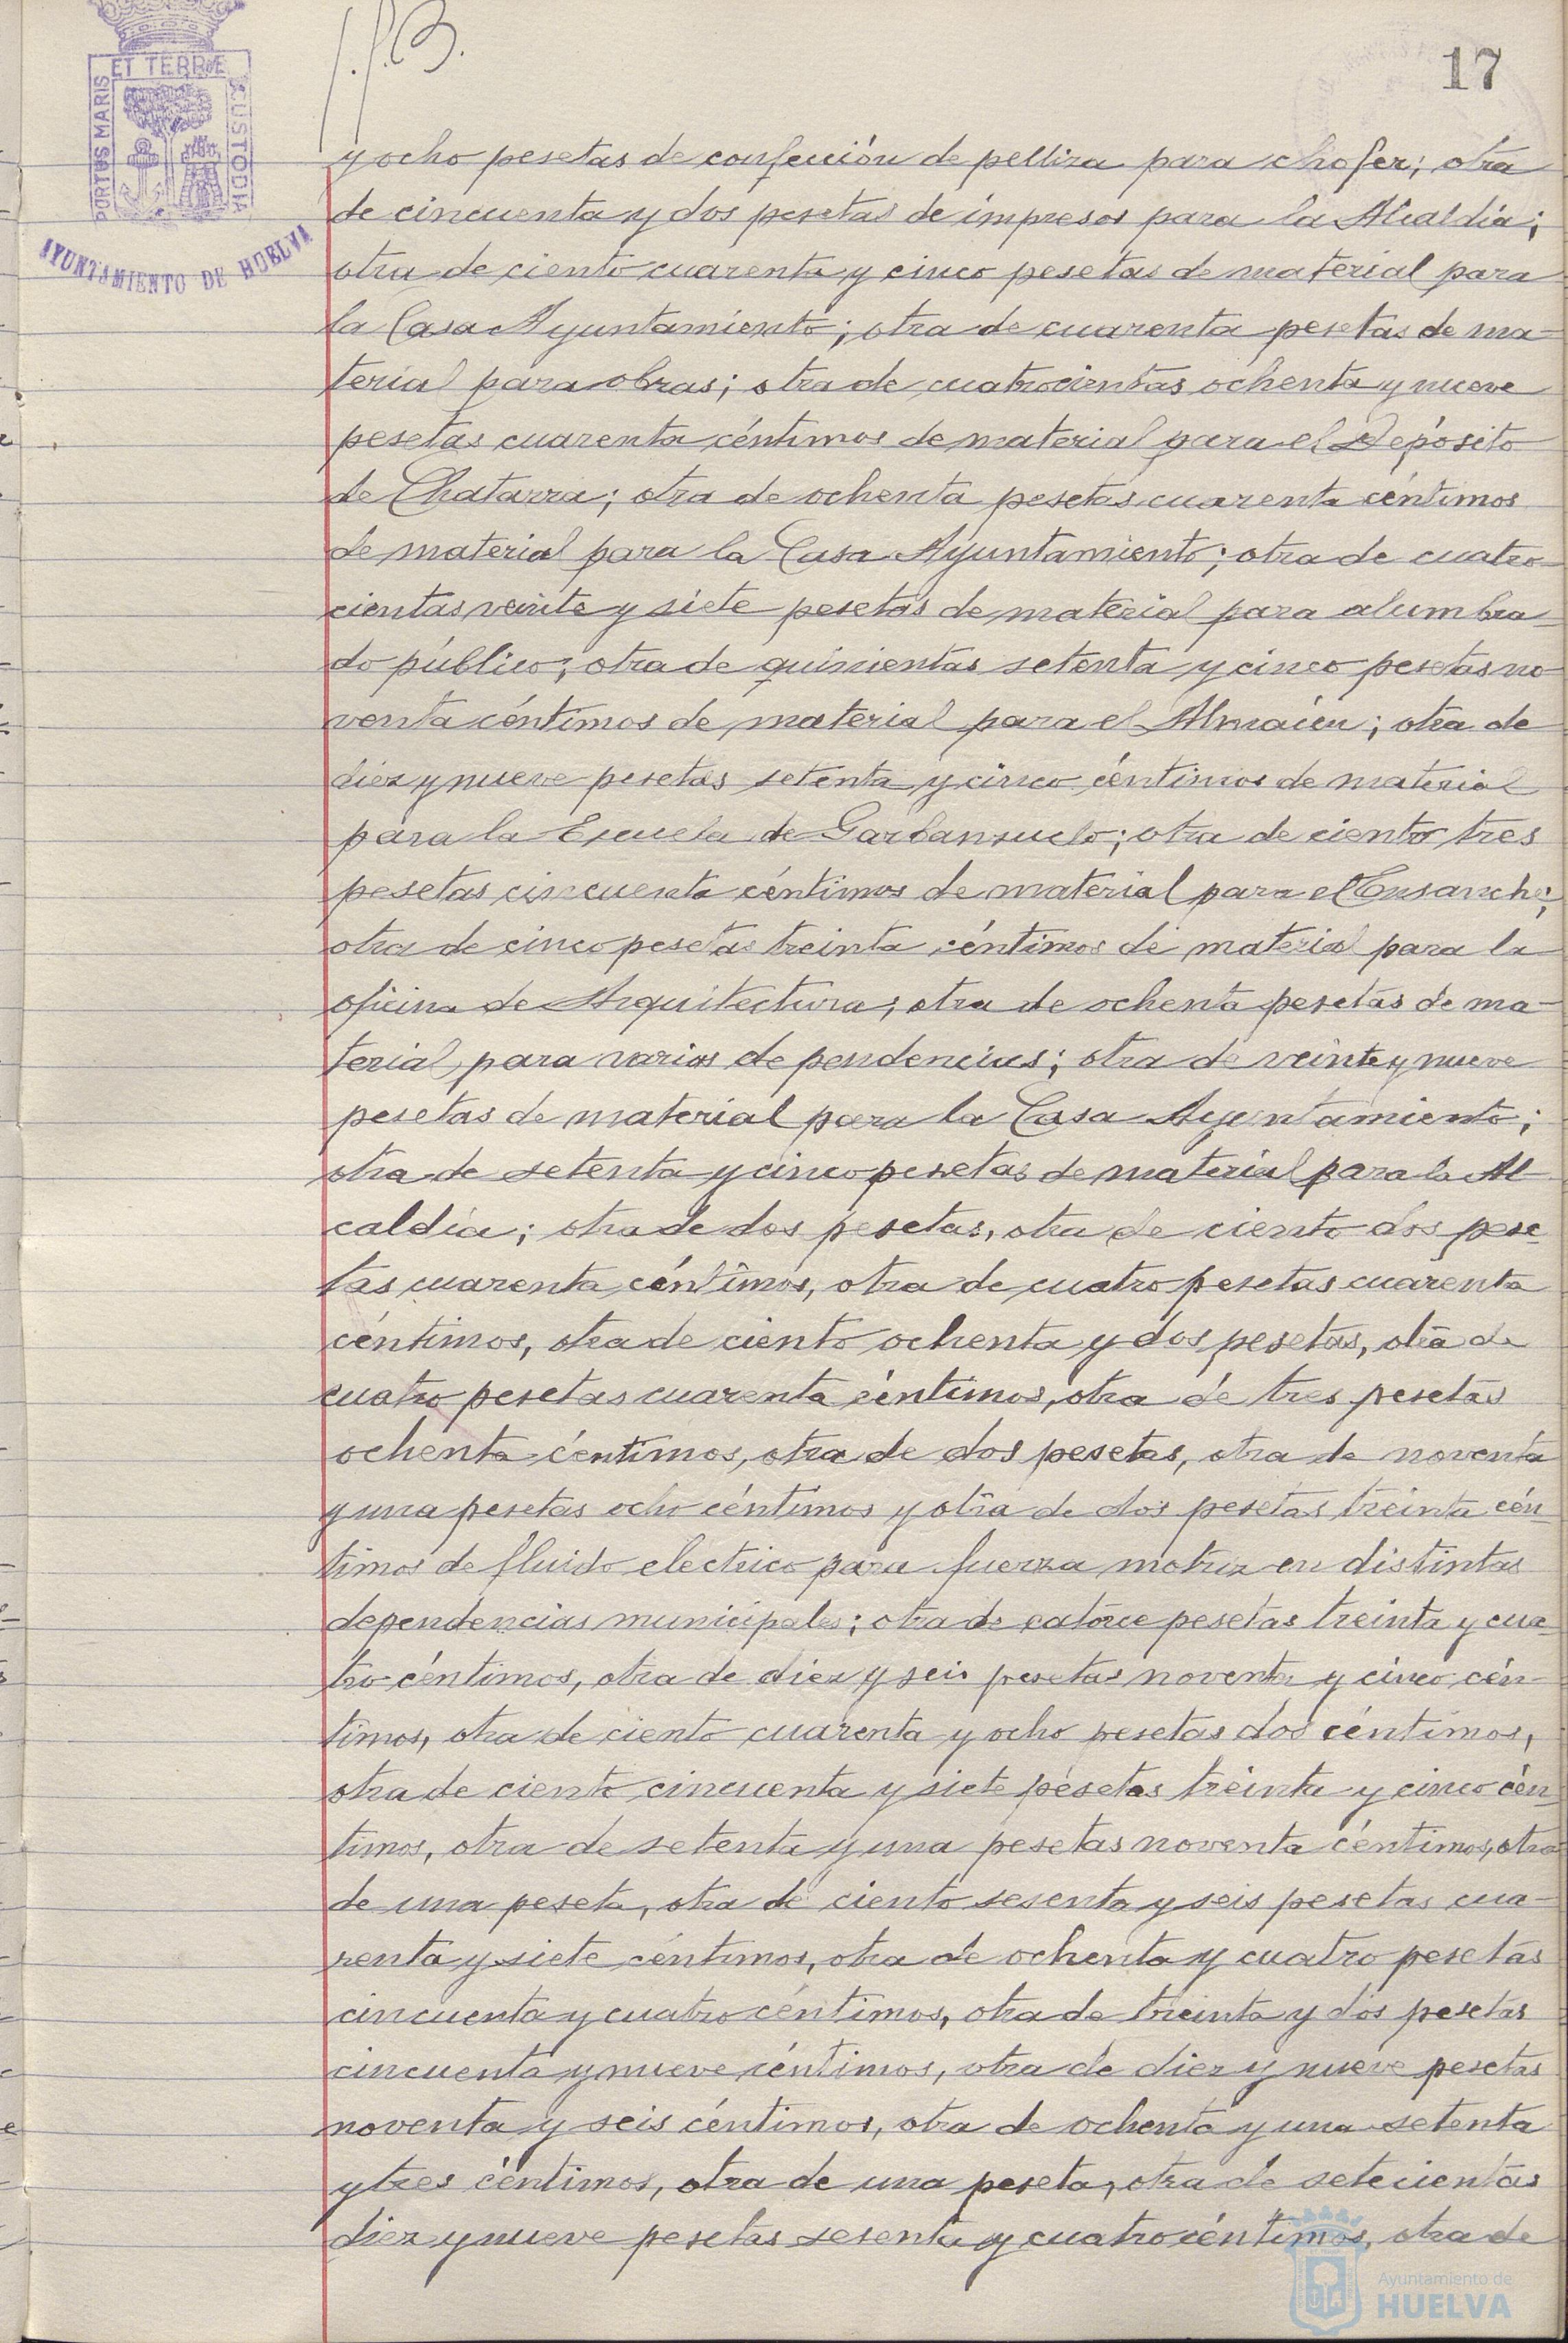 17
PORTUS MARIS ET TERRÆ CUSTODIA
AYUNTAMIENTO DE HUELVA
y ocho pesetas de confección de pelliza para chofer; otra
de cincuenta y dos pesetas de impresos para la Alcaldía;
otra de ciento cuarenta y cinco pesetas de material para
la Casa Ayuntamiento; otra de cuarenta pesetas de ma-
terial para obras; otra de cuatrocientas ochenta y nueve
pesetas cuarenta céntimos de material para el Depósito
de Chatarra; otra de ochenta pesetas cuarenta céntimos
de material para la Casa Ayuntamiento; otra de cuatro-
cientas veinte y siete pesetas de material para alumbra-
do público; otra de quinientas setenta y cinco pesetas no-
venta céntimos de material para el Almacén; otra de
diez y nueve pesetas setenta y cinco céntimos de material
para la Escuela de Garbanzuelo; otra de ciento tres
pesetas cincuenta céntimos de material para el Ensanche;
otra de cinco pesetas treinta céntimos de material para la
oficina de Arquitectura; otra de ochenta pesetas de ma-
terial para varios dependencias; otra de veinte y nueve
pesetas de material para la Casa Ayuntamiento;
otra de setenta y cinco pesetas de material para la Al-
caldía; otra de dos pesetas, otra de ciento dos pese-
tas cuarenta céntimos, otra de cuatro pesetas cuarenta
céntimos, otra de ciento ochenta y dos pesetas, otra de
cuatro pesetas cuarenta céntimos, otra de tres pesetas
ochenta céntimos, otra de dos pesetas, otra de noventa
y una pesetas ocho céntimos y otra de dos pesetas treinta cén-
timos de fluido electrico para fuerza motriz en distintas
dependencias municipales; otra de catorce pesetas treinta y cua-
tro céntimos, otra de diez y seis pesetas noventa y cinco cén-
timos, otra de ciento cuarenta y ocho pesetas dos céntimos,
otra de ciento cincuenta y siete pesetas treinta y cinco cén-
timos, otra de setenta y una pesetas noventa céntimos, otra
de una peseta, otra de ciento sesenta y seis pesetas cua-
renta y siete céntimos, otra de ochenta y cuatro pesetas
cincuenta y cuatro céntimos, otra de treinta y dos pesetas
cincuenta y nueve céntimos, otra de diez y nueve pesetas
noventa y seis céntimos, otra de ochenta y una setenta
y tres céntimos, otra de una peseta, otra de setecientas
diez y nueve pesetas sesenta y cuatro céntimos, otra de
Ayuntamiento de
HUELVA